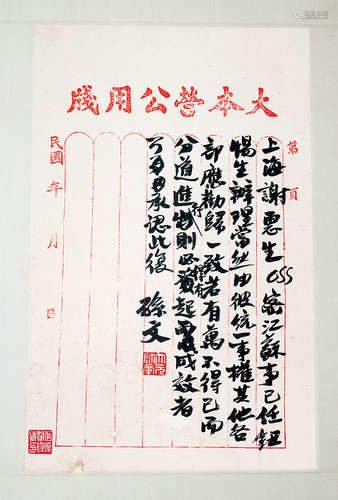 大本營公用牋
第 頁
上海謝惠生055密江蘇事已任鈕
惕生辦理當然由彼統一事權其他各
部應勸歸一致若有萬不得已而
分道進行則必須有起兵成效者
乃可承認此復
孫文
民國 年 月 日